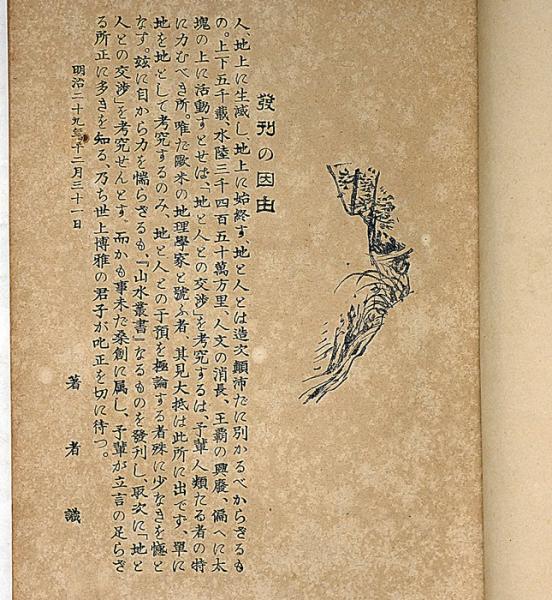 發刊の因由
人、地上に生滅し、地上に始終す、地と人とは造次顚沛だに別かるべからざるも
の。上下五千載、水陸三千四百五十萬方里、人文の消長、王覇の興廢、偏へに太
塊の上に活動すとせば、「地と人との交渉」を考究するは、予輩人類たる者の特
に力むべき所。唯だ歐米の地理學家と號ふ者、其見大抵は此所に出です、單に
地を地として考究するのみ、地と人との干預を極論する者殊に少なきを憾と
なす。玆に自から力を惴らざるも、「山水叢書」なるものを發刊し、取次に「地と
人との交渉」を考究せんとす、而かも事未た桑創に属し、予輩が立言の足らざ
る所正に多きを知る、乃ち世上博雅の君子が叱正を切に待つ。
明治二十九年十二月三十一日
著者識